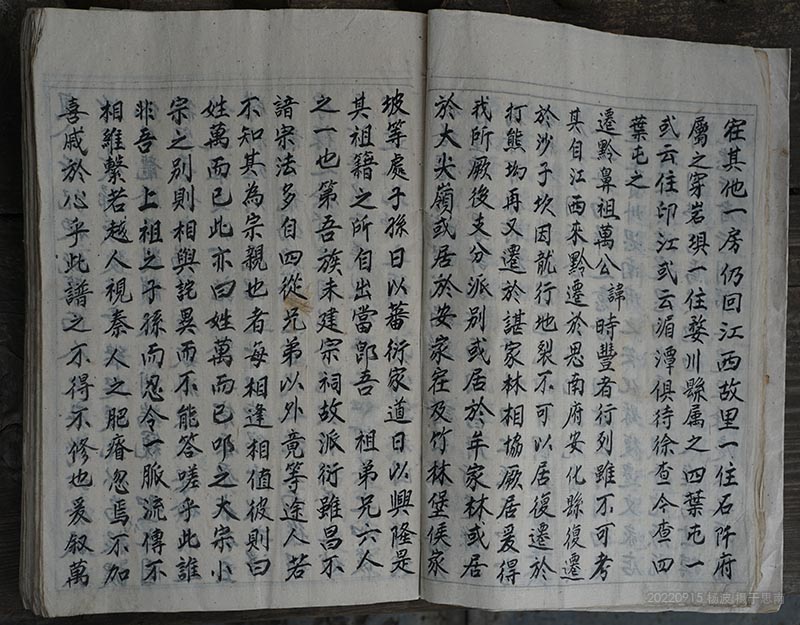 在其他一房仍回江西故里一住石阡府
屬之穿岩垻一住婺川縣属之四葉屯一
或云住印江或云湄潭俱待徐查今查四
葉屯之
遷黔鼻祖萬公諱時豐者行列雖不可考
其自江西來黔遷於思南府安化縣復遷
於沙子坎因龍行地裂不可以居復遷於
打熊坳再又遷於諶家林相協厥居爰得
我所厥後支分派别或居於牟家林或居
於大尖嶺或居於安家在及竹林堡侯家
坡等處子孫日以蕃衍家道日以興隆是
其祖籍之所自出當即吾 祖弟兄六人
之一也第吾族未建宗祠故派衍雖昌不
諳宗法多自四從兄弟以外竟等途人若
不知其為宗親也者每相逢相值彼則曰
姓萬而已此亦曰姓萬而已叩之大宗小
宗之别則相與詫異而不能答嗟乎此誰
非吾 上祖之子孫而忍令一脈流傳不
相維繫若越人視秦人之肥瘠忽焉不加
喜戚於心乎此譜之不得不修也爰叙萬
20220915 杨波 摄于思南